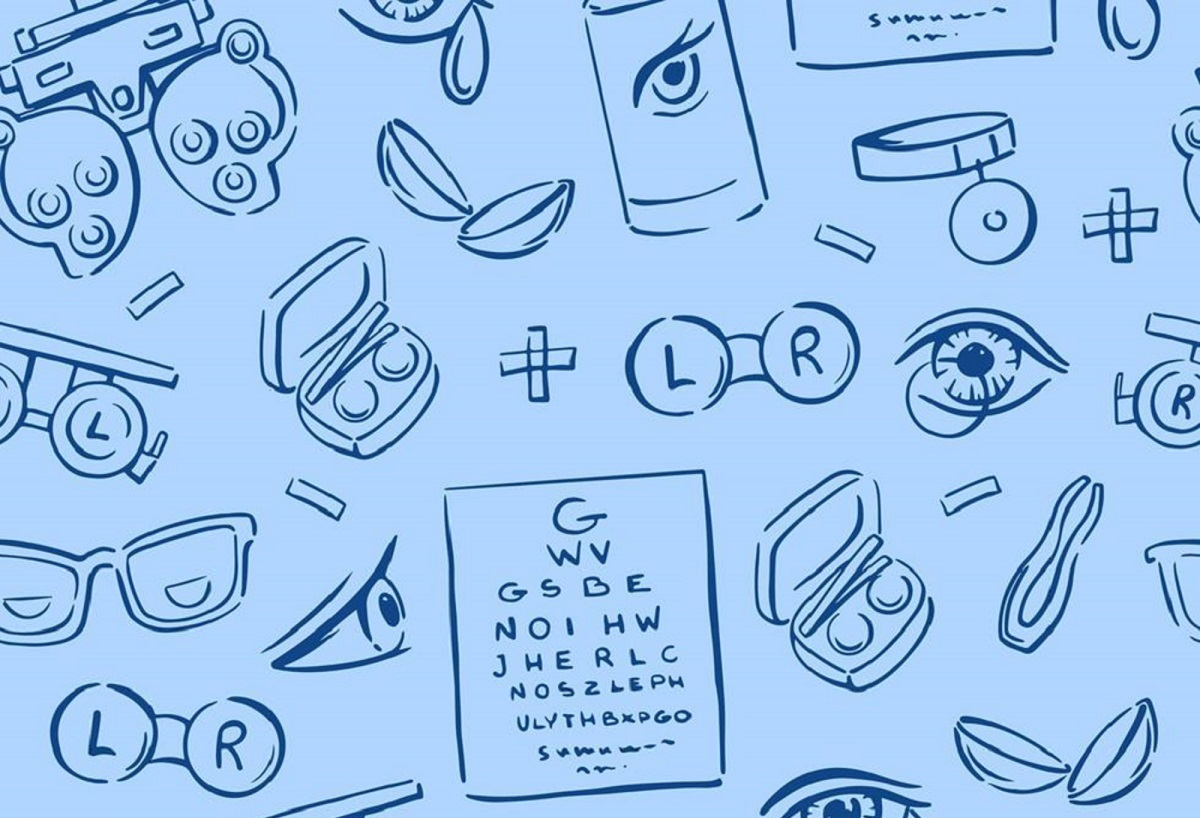 L R
L
R
G
WV
GSBE
NOI HW
JHERLC
NOSZLEPH
ULYTHBXPGO
L R